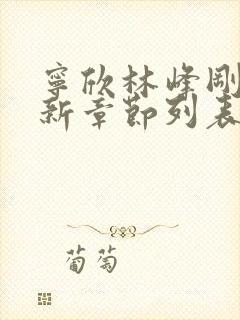 寧欣林峰剛
新章節列表
葡萄